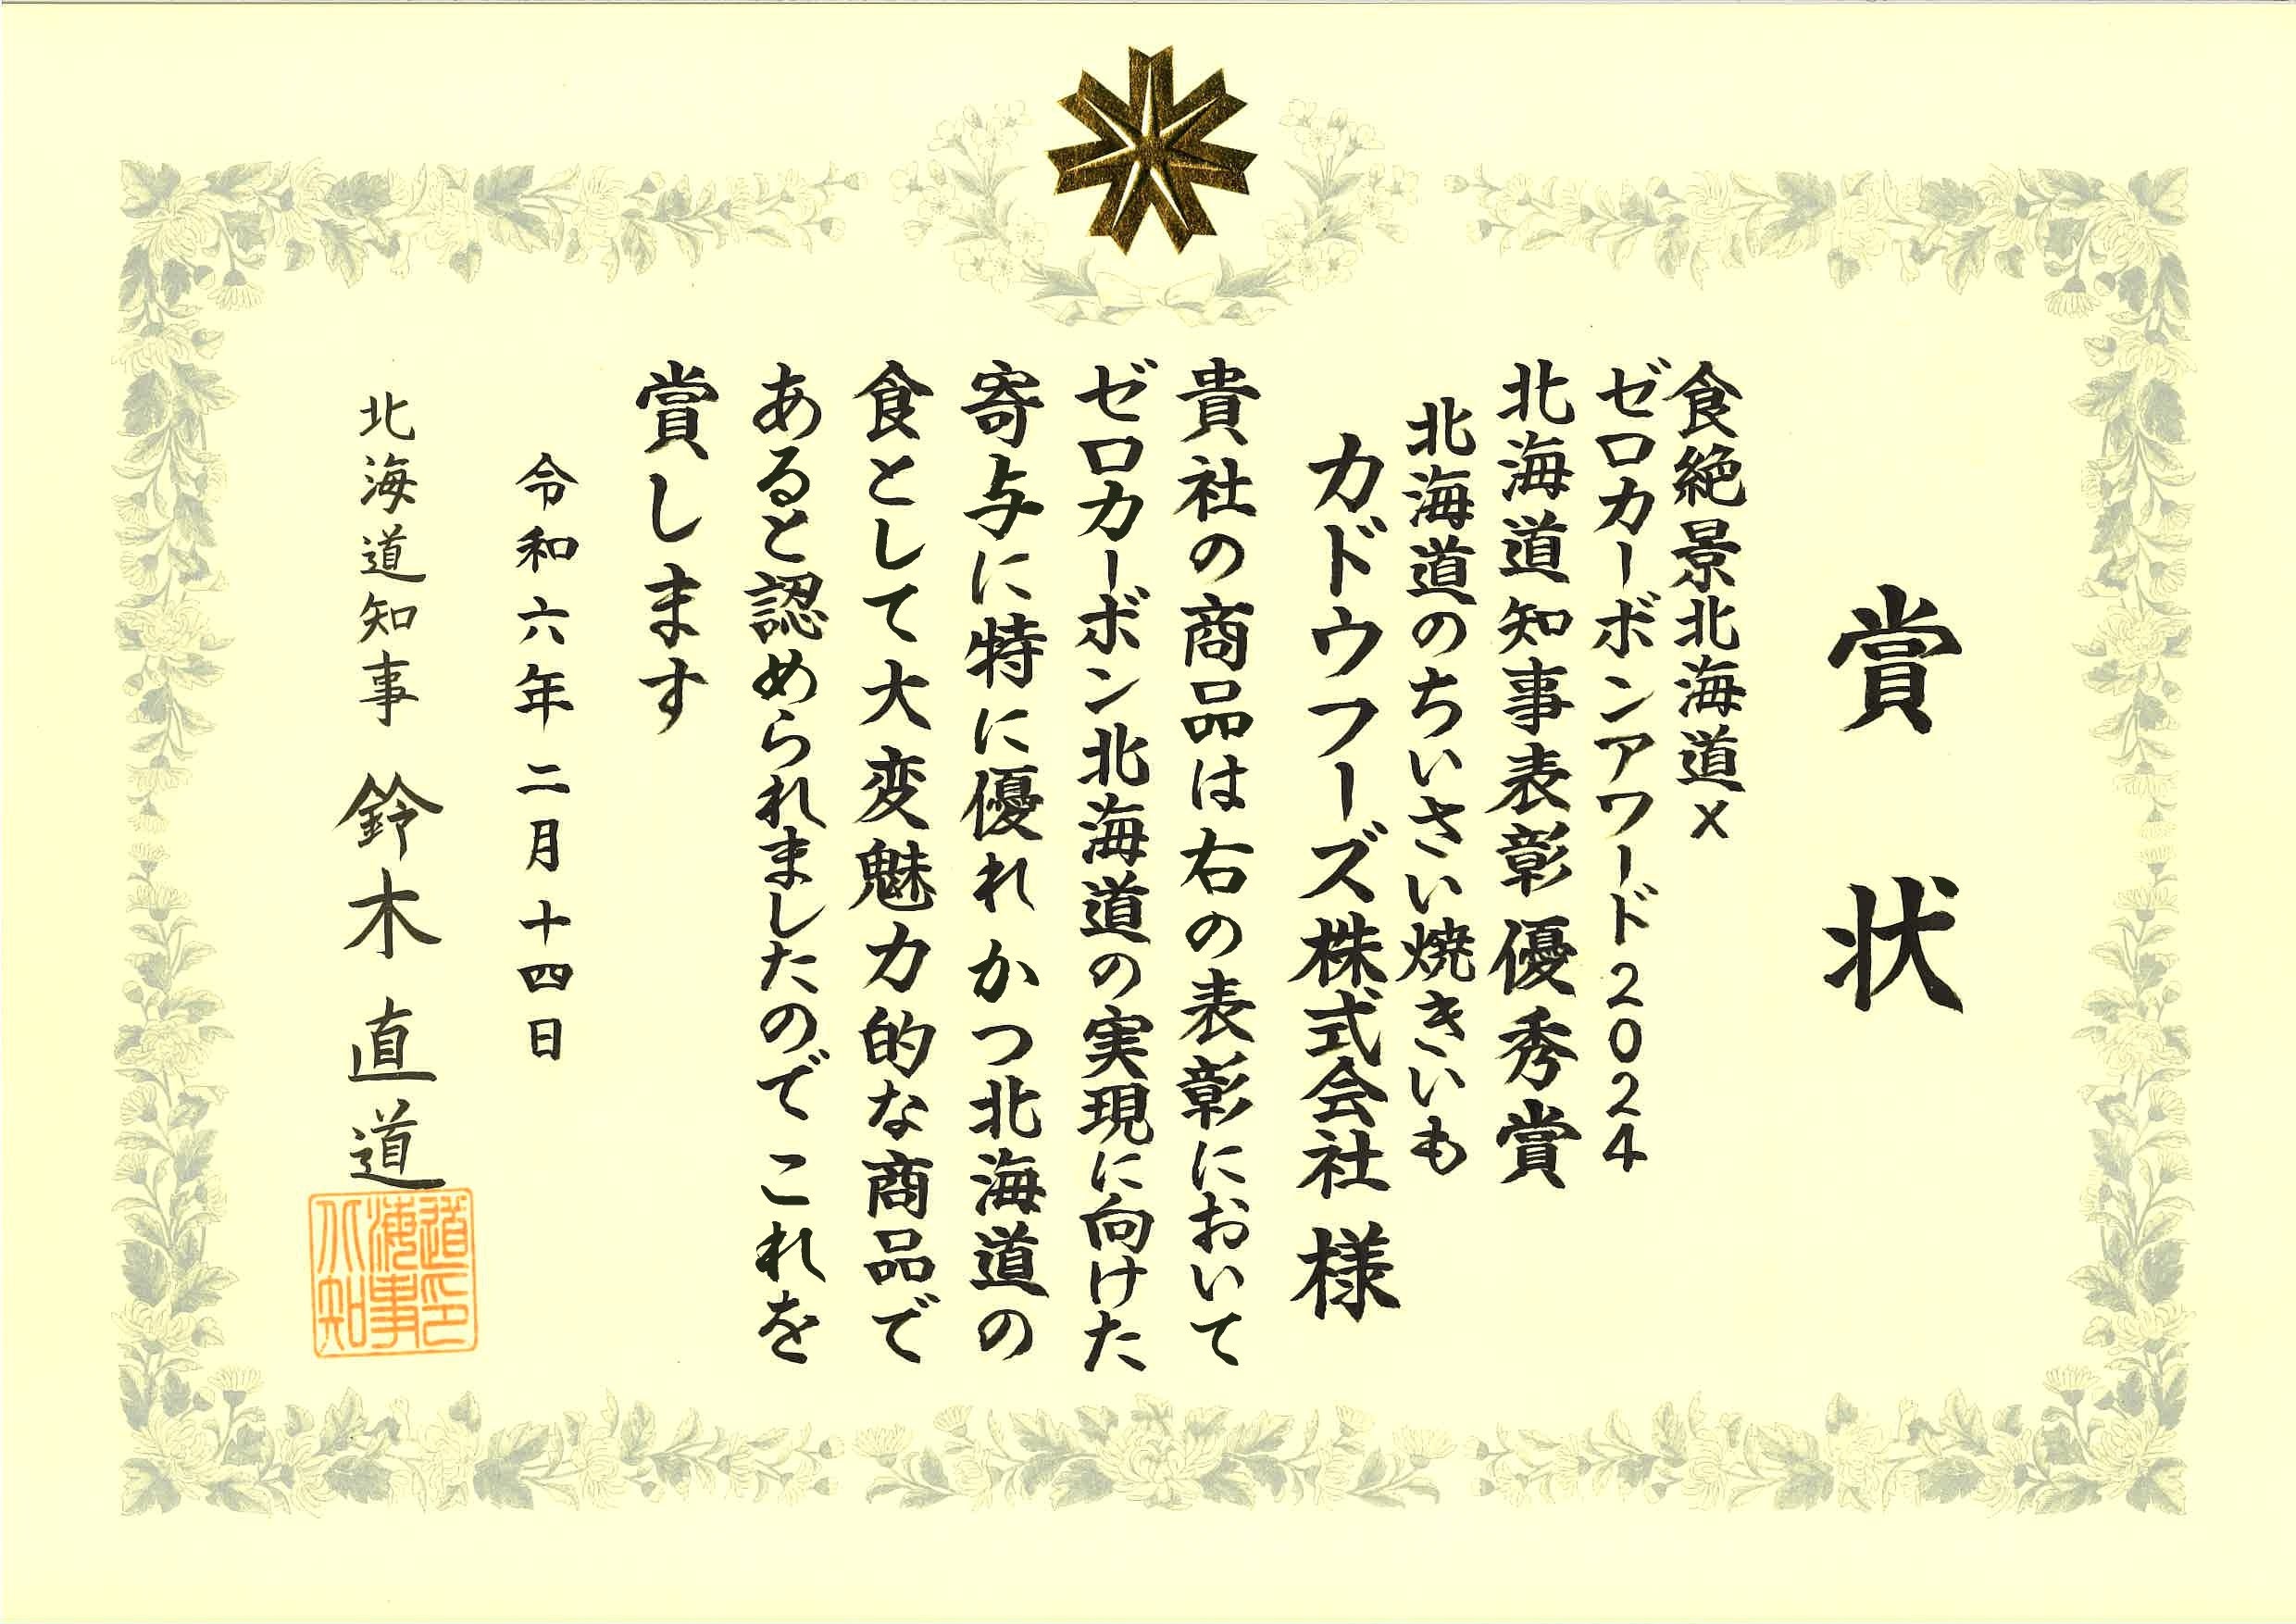 賞状
食絶景北海道×
ゼロカーボンアワード2024
北海道知事表彰優秀賞
北海道のちいさい焼きいも
カドウフーズ株式会社 様
貴社の商品は右の表彰において
ゼロカーボン北海道の実現に向けた
寄与に特に優れかつ北海道の
食として大変魅力的な商品で
あると認められましたのでこれを
賞します
令和六年二月十四日
北海道知事 鈴木直道
北海道知事印